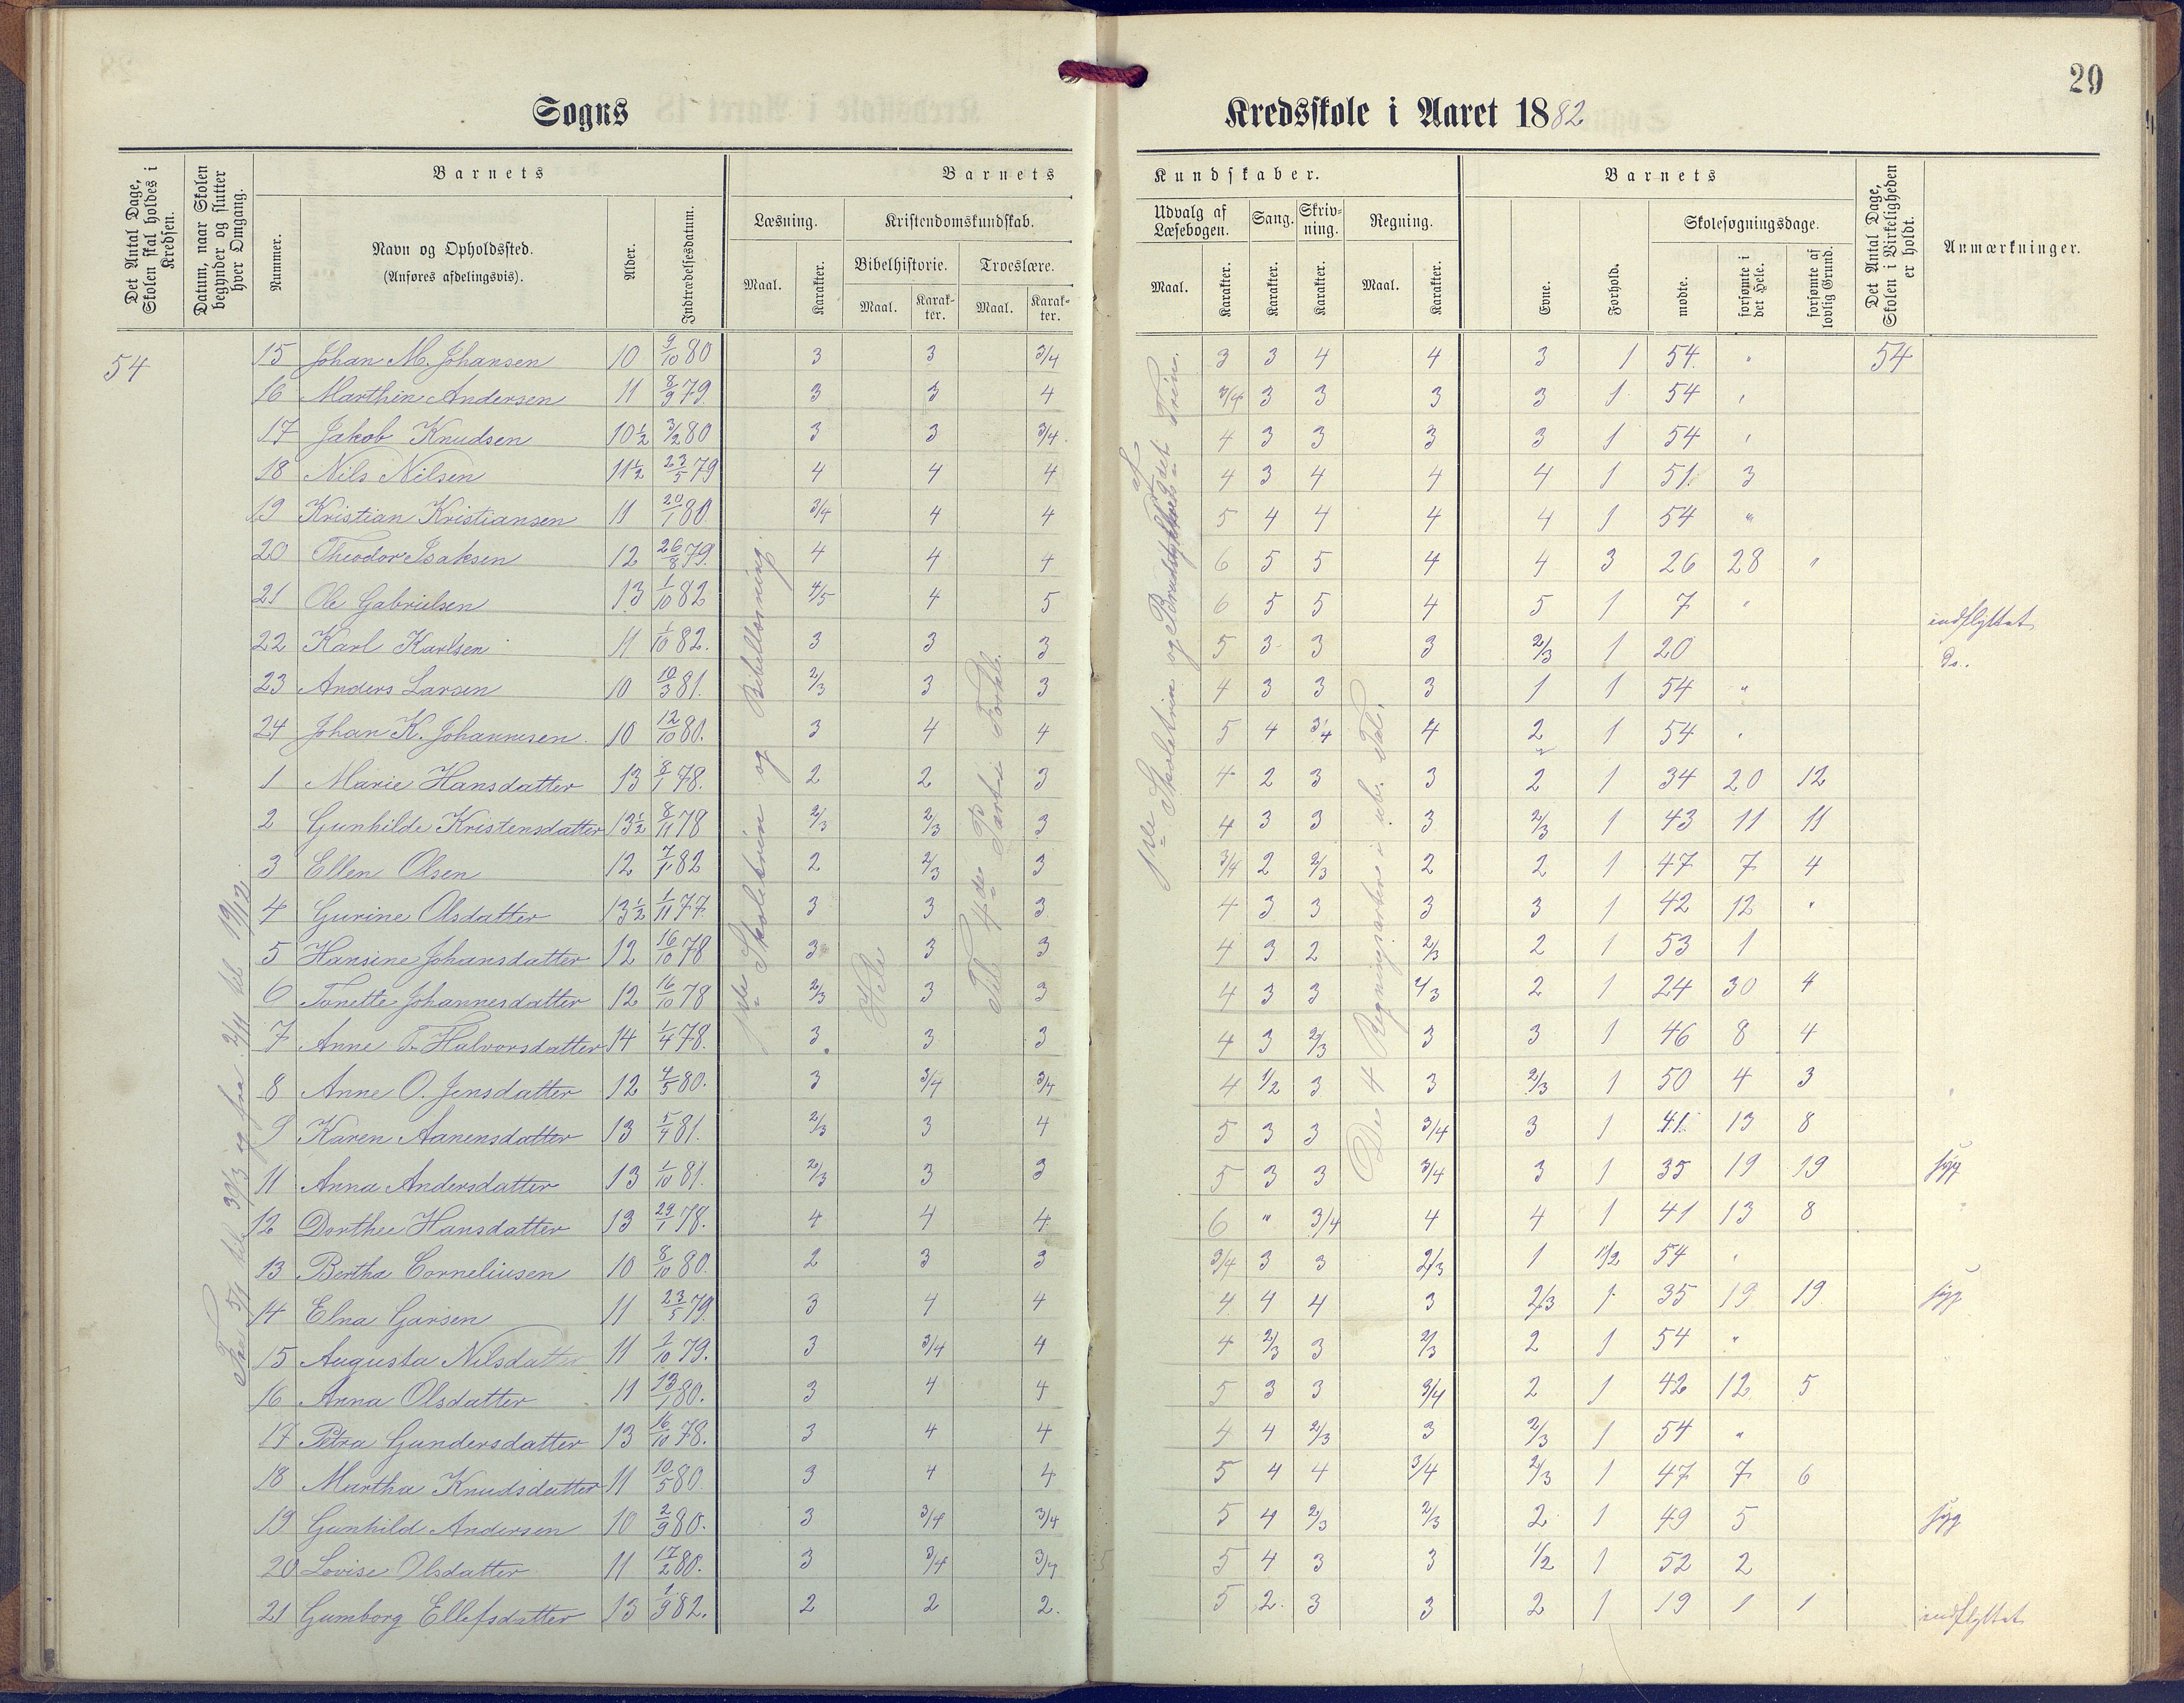 29
Sogns Kredsskole i Aaret 1882
Det Antal Dage, Skolen skal holdes i Kredsen.
Datum, naar Skolen begynder og slutter hver Omgang.
Barnets
Nummer.
Navn og Opholdssted.
(Anføres afdelingsvis).
Alder.
Indtrædelsesdatum.
Barnets Kundskaber.
Læsning.
Maal.
Karakter.
Kristendomskundskab.
Bibelhistorie.
Maal.
Karakter.
Troeslære.
Maal.
Karakter.
Udvalg af Læsebogen.
Maal.
Karakter.
Sang.
Karakter.
Skrivning.
Karakter.
Regning.
Maal.
Karakter.
Barnets
Evne.
Forhold.
Skolesøgningsdage.
mødte.
forsømte i det Hele.
forsømte af lovlig Grund.
Det Antal Dage, Skolen i Virkeligheden er holdt.
Anmærkninger.
54
Fra 5/1 til 31/3 og fra 2/11 til 19/12
1ste Skoletrin og Bibellæsning.
Hele
Til 4de Part i Forkl.
1ste Skoletrin og Brudstykker af 2det Trin.
De 4 Regningsarter i ube. Tal.
15 Johan M. Johansen 10 9/10 80 3 3 3/4 3 3 4 4 3 1 54 " 54
16 Marthin Andersen 11 8/9 79 3 3 4 3/4 3 3 3 3 1 54 "
17 Jakob Knudsen 10½ 3/2 80 3 3 3/4 4 3 3 3 3 1 54 "
18 Nils Nilsen 11½ 23/5 79 4 4 4 4 3 4 4 4 1 51 3
19 Kristian Kristiansen 11 20/1 80 3/4 4 4 5 4 4 4 4 1 54 "
20 Theodor Isaksen 12 26/8 79. 4 4 4 6 5 5 4 4 3 26 28 "
21 Ole Gabrielsen 13 1/10 82 4/5 4 5 6 5 5 4 5 1 7 " indflyttet
22 Karl Karlsen 11 1/10 82. 3 3 3 5 3 3 3 2/3 1 20 Do.
23 Anders Larsen 10 10/3 81. 2/3 3 3 4 3 3 3 1 1 54 "
24 Johan K. Johannesen 10 12/10 80. 3 4 4 5 4 3/4 4 2 1 54 "
1 Marie Hansdatter 13 8/1 78. 2 2 3 4 2 3 3 2 1 34 20 12
2 Gunhilde Kristensdatter 13½ 8/11 78 2/3 2/3 3 4 3 3 3 2/3 1 43 11 11
3 Ellen Olsen 12 7/1 82 2 2/3 3 3/4 2 2/3 2 2 1 47 7 4
4 Gurine Olsdatter 13½ 1/11 77 3 3 3 4 3 3 3 3 1 42 12 "
5 Hansine Johansdatter 12 16/10 78 3 3 3 4 3 2 2/3 2 1 53 1
6 Tonette Johannesdatter 12 16/10 78 2/3 3 3 4 3 3 2/3 2 1 24 30 4
7 Anne T. Halvorsdatter 14 1/4 78. 3 3 3 4 3 2/3 3 3 1 46 8 4
8 Anne O. Jensdatter 12 4/5 80. 3 3/4 3/4 4 1/2 3 3 2/3 1 50 4 3
9 Karen Aanensdatter 13 5/4 81. 2/3 3 4 5 3 3 3/4 3 1 41 13 8
11 Anna Andersdatter 13 1/10 81. 2/3 3 3 5 3 3 3/4 3 1 35 19 19 syg
12 Dorthe Hansdatter 13 29/1 78. 4 4 4 6 " 3/4 4 4 1 41 13 8
13 Bertha Corneliusen 10 8/10 80. 2 3 3 3/4 3 3 2/3 1 1/2 54 "
14 Elna Garsen 11 23/5 79. 3 4 4 4 4 4 3 2/3 1 35 19 19 syg
15 Augusta Nilsdatter 11 2/10 79. 3 3/4 4 4 2/3 3 2/3 2 1 54 "
16 Anna Olsdatter 11 13/1 80. 3 4 4 5 3 3 3/4 2 1 42 12 5
17 Petra Gundersdatter 13 16/10 78. 3 4 4 4 4 2/3 3 2/3 1 54 "
18 Martha Knudsdatter 11 10/5 80 3 4 4 5 4 4 3/4 2/3 1 47 7 6
19 Gunhild Andersen 10 2/9 80. 3 3/4 3/4 5 4 2/3 2/3 2 1 49 5 syg
20 Lovise Olsdatter 11 17/2 80. 3 3/4 3/4 5 4 3 3 1/2 1 52 2
21 Gumborg Ellefsdatter 13 1/9 82. 2 2 2. 5 2. 3 3 2 1 19 1 1 indflyttet